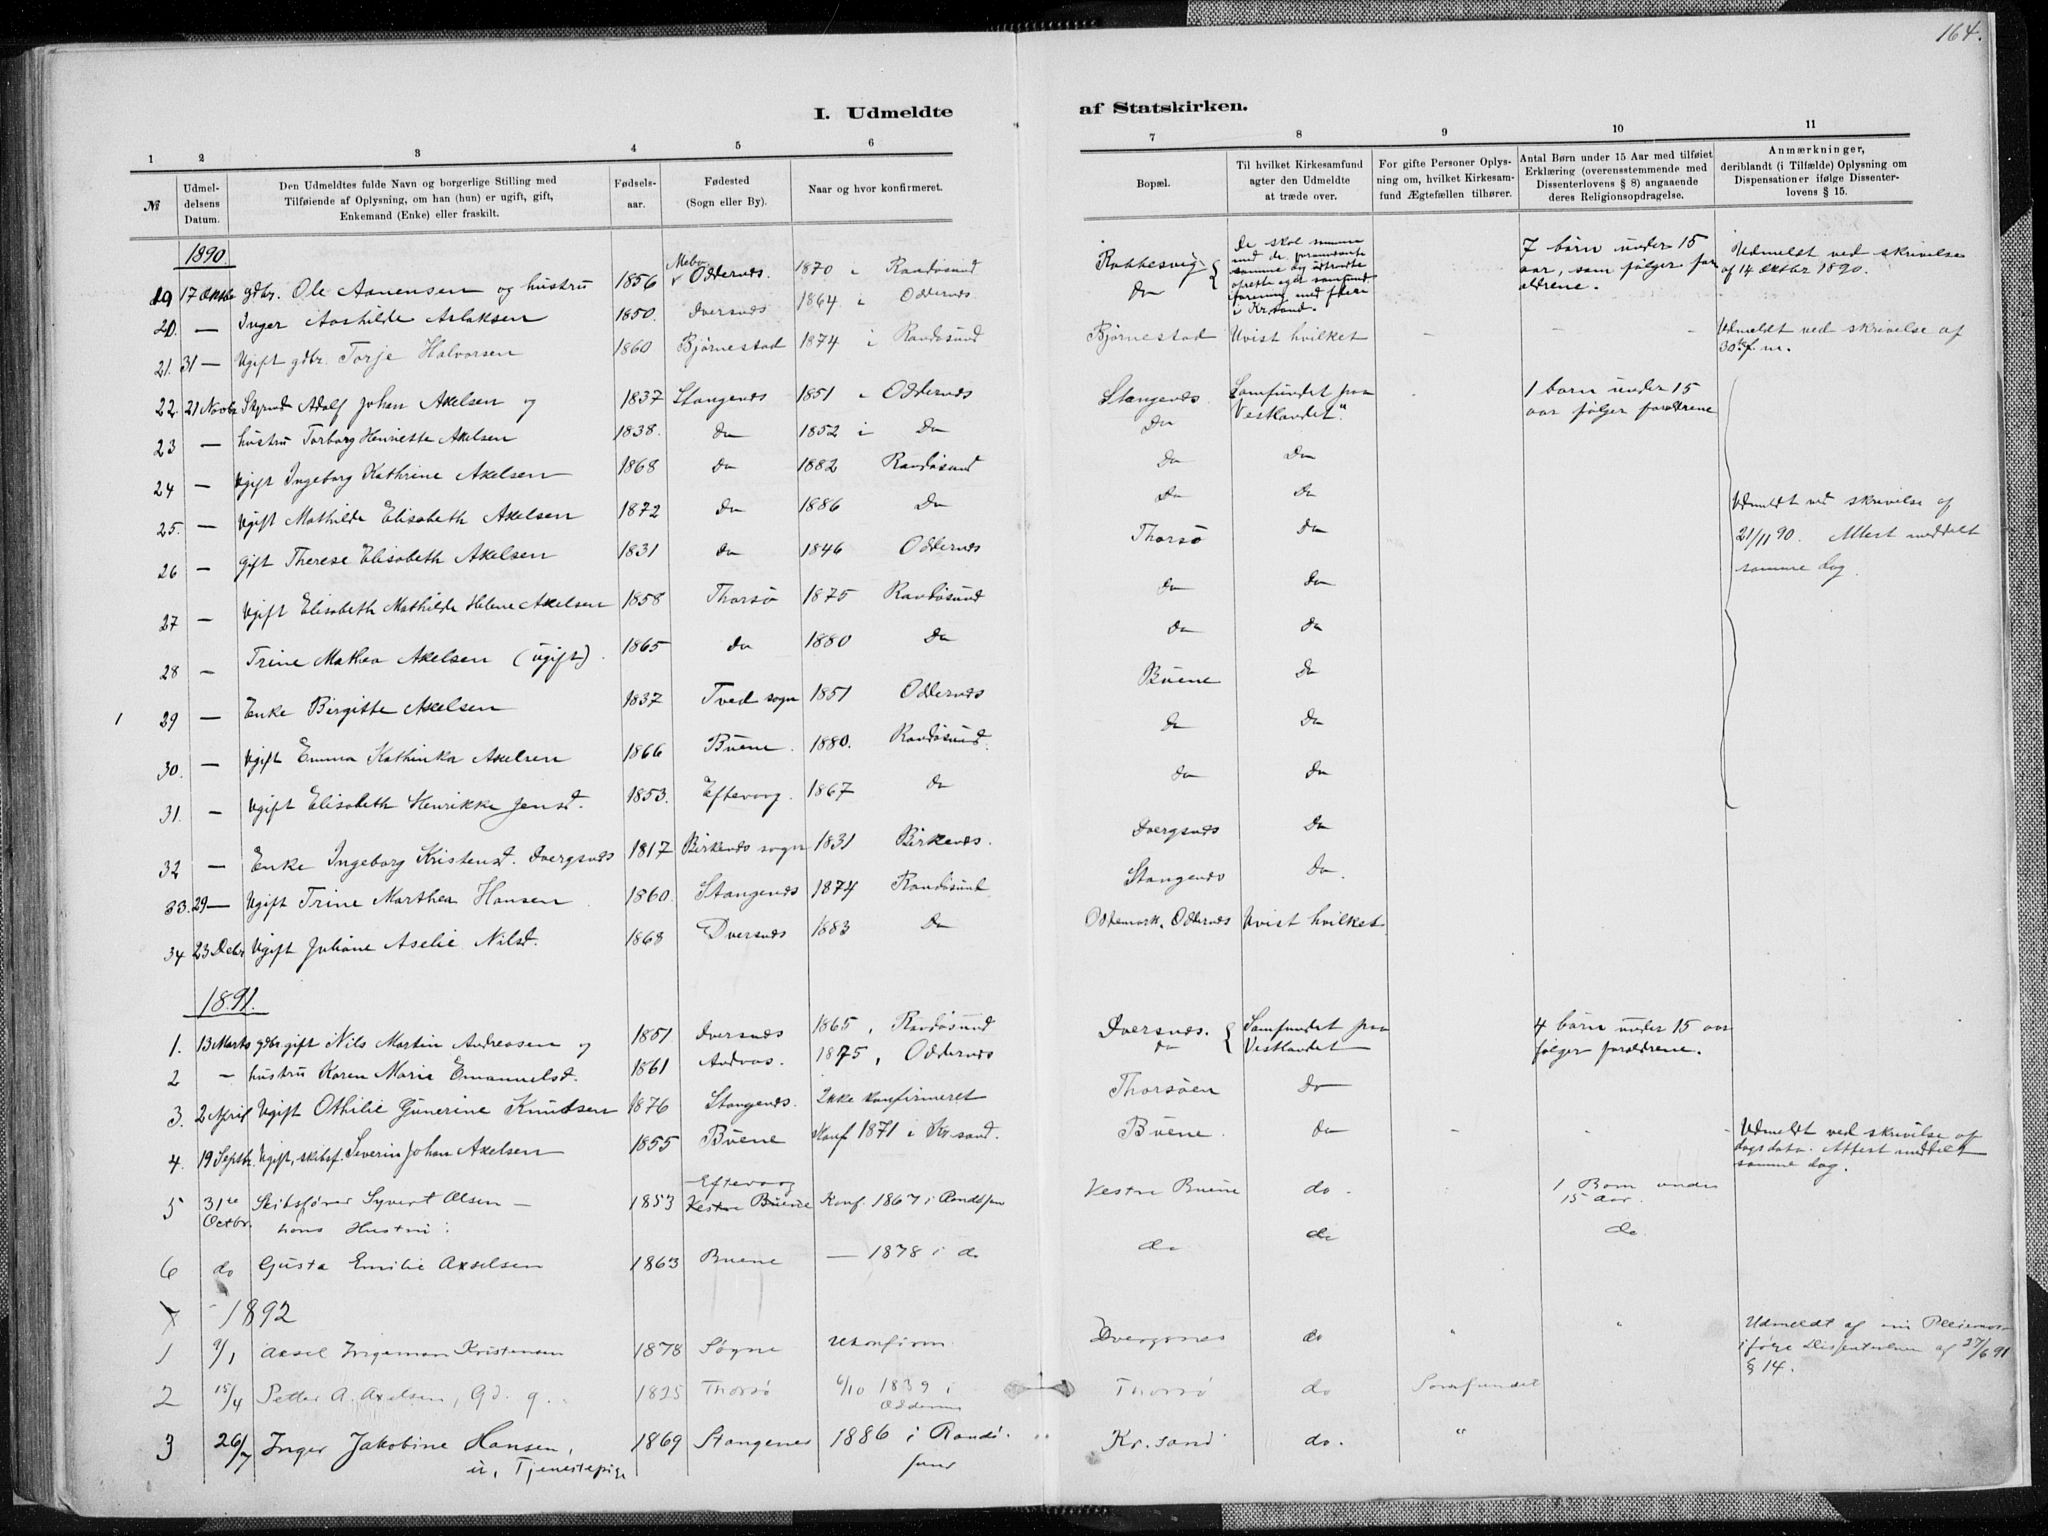 164.
I. Udmeldte af Statskirken.
1 2 3 4 5 6 7 8 9 10 11
№
Udmel-
delsens
Datum.
Den Udmeldtes fulde Navn og borgerlige Stilling med
Tilføiende af Oplysning, om han (hun) er ugift, gift,
Enkemand (Enke) eller fraskilt.
Fødsels-
aar.
Fødested
(Sogn eller By).
Naar og hvor konfirmeret.
Bopæl.
Til hvilket Kirkesamfund
agter den Udmeldte
at træde over.
For gifte Personer Oplys-
ning om, hvilket Kirkesam-
fund Ægtefællen tilhører.
Antal Børn under 15 Aar med tilføiet
Erklæring (overensstemmende med
Dissenterlovens § 8) angaaende
deres Religionsopdragelse.
Anmærkninger,
deriblandt (i Tilfælde) Oplysning om
Dispensationer ifølge Dissenter-
lovens § 15.
1890.
19 17 Oktbr gdbr. Ole Aanensen og hustru 1856 Oddernes 1870 i Randøsund Rabbesvig 7 børn under 15 aar, som følger forældrene. Udmeldt ved skrivelse af 14 Oktbr 1890.
20. — Inger Aashilde Aslaksen 1850. Dversnes 1864 i Oddernes Do
21. 31 — Ugift gdbr. Torje Halvorsen 1860 Bjørnestad 1874 i Randøsund Bjørnestad Uvist hvilket - - - Udmeldt ved skrivelse af 30te f. m.
22. 21 Novbr Adolf Johan Axelsen og 1837 Stangenes 1851 i Oddernes Stangenes Samfundet fra Vestlandet". 1 barn under 15 aar følger forældrene
23 — hustru Torborg Henriette Axelsen 1838. do 1852 i Do Do
24 — Ugift Ingeborg Kathrine Axelsen 1868 do 1882 Randøsund Do Do
25. — Ugift Mathilde Elisabeth Axelsen 1872 do 1886 Do Do Do Udmeldt ved skrivelse af 21/11 90. Attest meddelt samme dag.
26 — gift Therese Elisabeth Axelsen 1831 do 1846 Oddernes Thorsø Do
27 — Ugift Elisabeth Mathilde Helene Axelsen 1858 Thorsø 1875 Randøsund do Do
28 — Trine Mathea Axelsen (ugift). 1865 do 1880 Do do do
1 29 — Enke Birgitte Axelsen 1837 Tved sogn 1851 Oddernes Buene Do
30. — Ugift Emma Kathinka Axelsen 1866 Buene. 1880. Randøsund. do Do
31. — Ugift Elisabeth Henrikke Jensd. 1853. Eftevaag. 1867 do do Do
32 — Enke Ingeborg Kristensd. Dvergsnes 1817 Birkenes sogn 1831 Birkenes. Dvergsnes Do
33. 29 — Ugift Trine Marthea Hansen 1860. Stangenes 1874 Randøsund Stangenes Do.
34 23 Debr Ugift Juliane Aselie Nilsd. 1868 Dversnes 1883 Do Oddernes Uvist hvilket
1891.
1. 13 Marts gdbr. gift Nils Martin Andreasen og 1851 Dversnes 1865, Randøsund Dversnes. Samfundet fra Vestlandet 4 børn under 15 aar følger forældrene.
2 " hustru Karen Marie Emanuelsd. 1861 Andaas. 1875, Oddernes do
3. 2 April Ugift Othilie Gunerine Knudsen 1876 Stangenes. Ikke konfirmeret Thorsøen Do
4. 19 Septbr. Ugift, skibsf. Severin Johan Axelsen 1855 Buene Konf 1871 i Kr. sand. Buene. do - - - Udmeldt ved skrivelse af dags dato. Attest meddelt samme dag.
5 31te Octbr. Skibsfører Syvert Olsen — 1853 Eftevaag Vestre Buene Konf. 1867 i Randøsun Vestre Buene do. 1 Barn under 15 Aar.
hans Hustru:
6 do Gusta Emilie Axselsen 1863 Buene — 1878 i do do do do
7 1892
1 9/1 Axsel Ingeman Kristensen 1878 Søgne ukonfirm. Dvergsnes do " " Udmeldt af sin ifølge Dissenterloven af 27/6 91 § 14.
2 15/4 Petter A. Axelsen, Gd. g. 1825 Thorsø 6/10 1839 i Oddernes Thorsø do Samfundet
3 26/7 Inger Jakobine Hansen, u, Tjenestepige 1869 Stangenes 1886 i Randøsund Kr. sand do. "